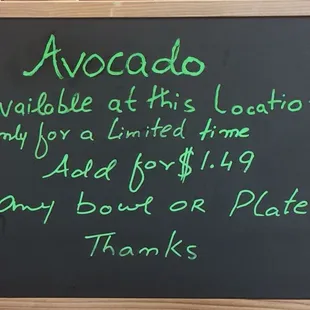 Avocado
available at this Location
only for a Limited time
Add for $1.49
any bowl OR Plate
Thanks